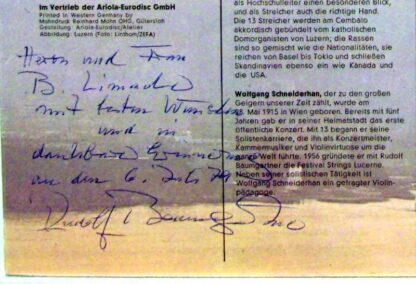 Im Vertrieb der Ariola-Eurodisc GmbH
Printed in Western Germany by
Mohndruck Reinhard Mohn OHG, Gütersloh
Gestaltung: Ariola-Eurodisc/Atelier
Abbildung: Luzern (Foto: Linthom/ZEFA)
Herrn und Frau
B. Limacher
mit besten Wünschen
und in
dankbarer Erinnerung
an den 6.
Rudolf Baumgartner
als Hochschulleiter einen besonderen Blick,
und als Streicher auch die richtige Hand.
Die 13 Streicher werden am Cembalo
akkordisch gebündelt vom katholischen
Domorganisten von Luzern, die Rassen
sind so gemischt wie die Nationalitäten, sie
reichen von Basel bis Tokio und schließen
Skandinavien ebenso ein wie Kanada und
die USA.
Wolfgang Schneiderhan, der zu den großen
Geigern unserer Zeit zählt, wurde am
28. Mai 1915 in Wien geboren. Bereits mit fünf
Jahren gab er in seiner Heimatstadt das erste
öffentliche Konzert. Mit 13 begann er seine
Solistenkarriere, die ihn als Konzertmeister,
Kammermusiker und Violinvirtuose um die
ganze Welt führte. 1956 gründete er mit Rudolf
Baumgartner die Festival Strings Lucerne.
Neben seiner solistischen Tätigkeit ist
Wolfgang Schneiderhan ein gefragter Violin-
pädagoge.